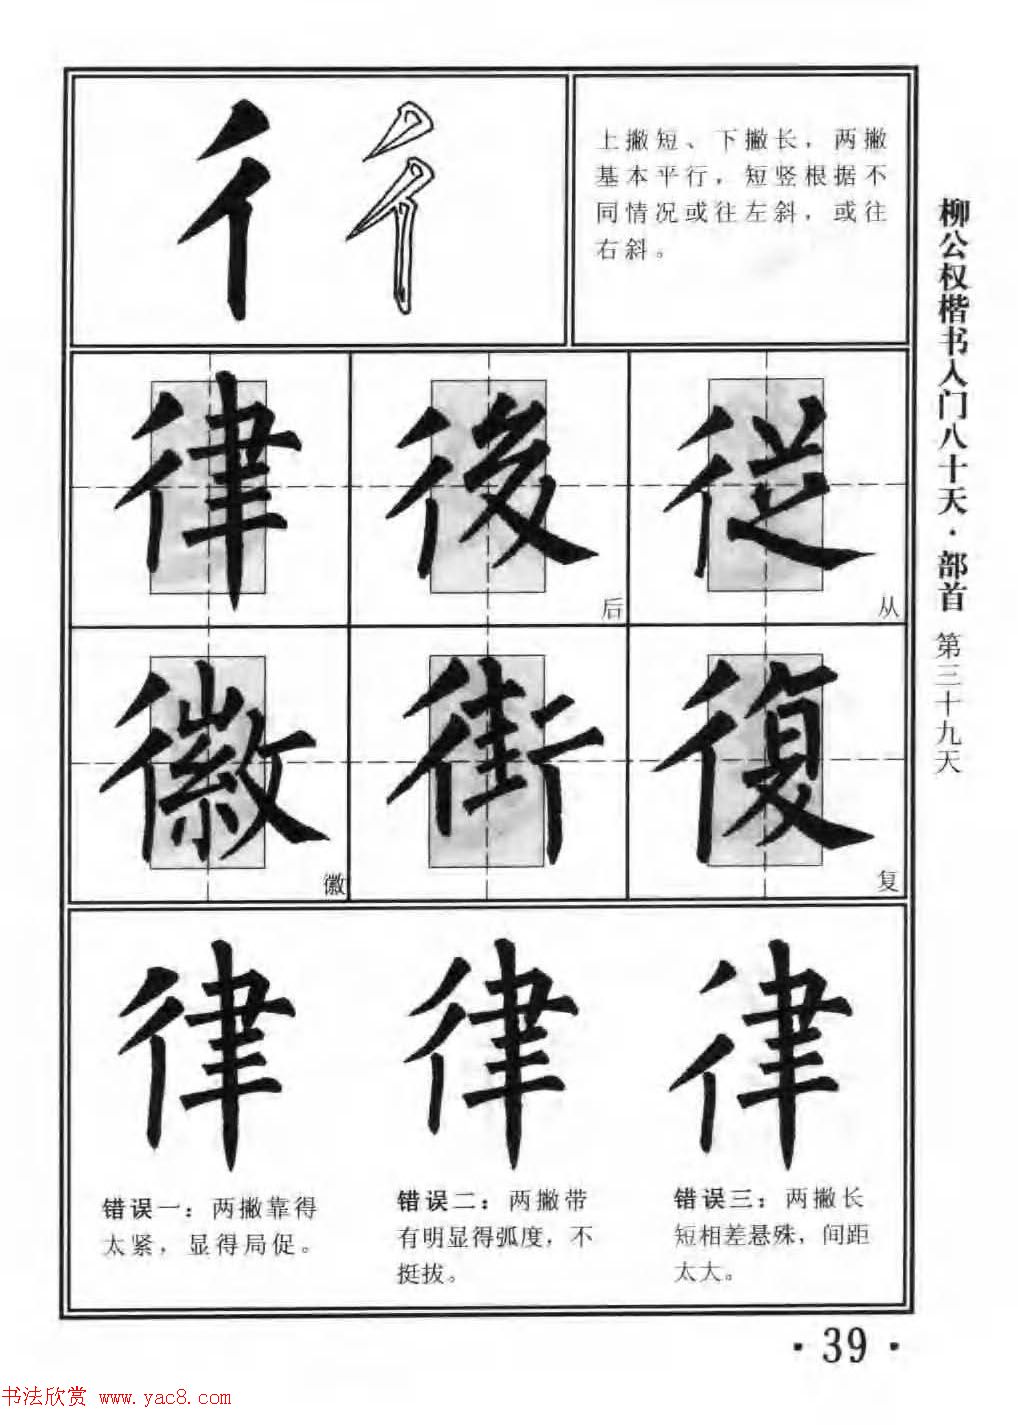 彳 彳
上撇短、下撇长，两撇
基本平行，短竖根据不
同情况或往左斜，或往
右斜。
律 後 従
后 从
徽 街 復
徽 复
律 律 律
错误一：两撇靠得
太紧，显得局促。
错误二：两撇带
有明显得弧度，不
挺拔。
错误三：两撇长
短相差悬殊，间距
太大。
柳公权楷书入门八十天·部首 第三十九天
·39·
书法欣赏 www.yac8.com